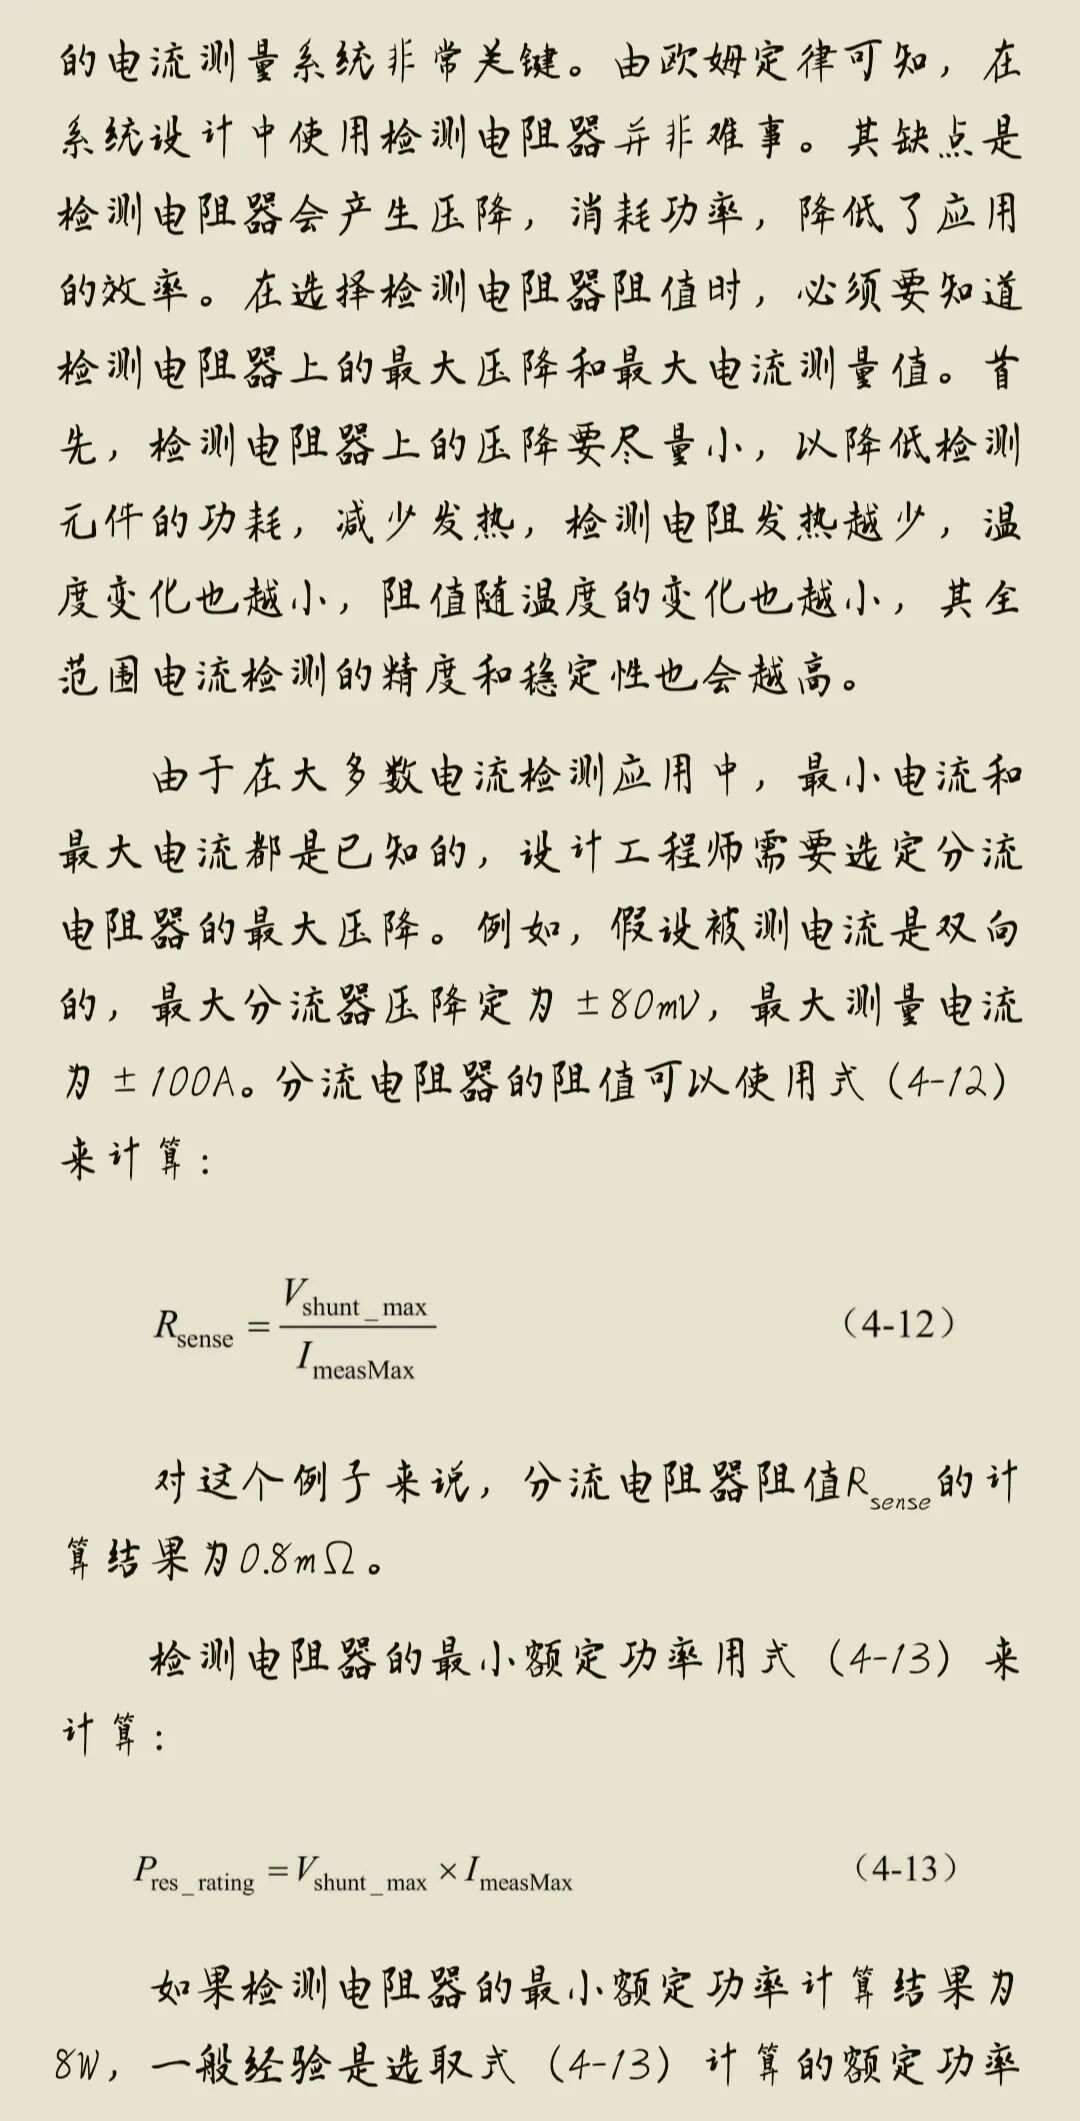 的电流测量系统非常关键。由欧姆定律可知，在
系统设计中使用检测电阻器并非难事。其缺点是
检测电阻器会产生压降，消耗功率，降低了应用
的效率。在选择检测电阻器阻值时，必须要知道
检测电阻器上的最大压降和最大电流测量值。首
先，检测电阻器上的压降要尽量小，以降低检测
元件的功耗，减少发热，检测电阻发热越少，温
度变化也越小，阻值随温度的变化也越小，其全
范围电流检测的精度和稳定性也会越高。
由于在大多数电流检测应用中，最小电流和
最大电流都是已知的，设计工程师需要选定分流
电阻器的最大压降。例如，假设被测电流是双向
的，最大分流器压降定为±80mV，最大测量电流
为±100A。分流电阻器的阻值可以使用式（4-12）
来计算：
R_sense = V_shunt_max / I_measMax （4-12）
对这个例子来说，分流电阻器阻值R_sense的计
算结果为0.8mΩ。
检测电阻器的最小额定功率用式（4-13）来
计算：
P_res_rating = V_shunt_max × I_measMax （4-13）
如果检测电阻器的最小额定功率计算结果为
8W，一般经验是选取式（4-13）计算的额定功率